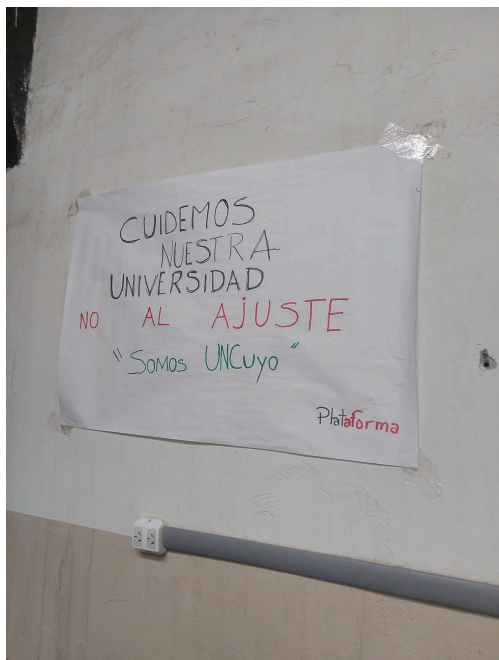 CUIDEMOS
NUESTRA
UNIVERSIDAD
NO AL AJUSTE
"SOMOS UNCuyo"
Plataforma